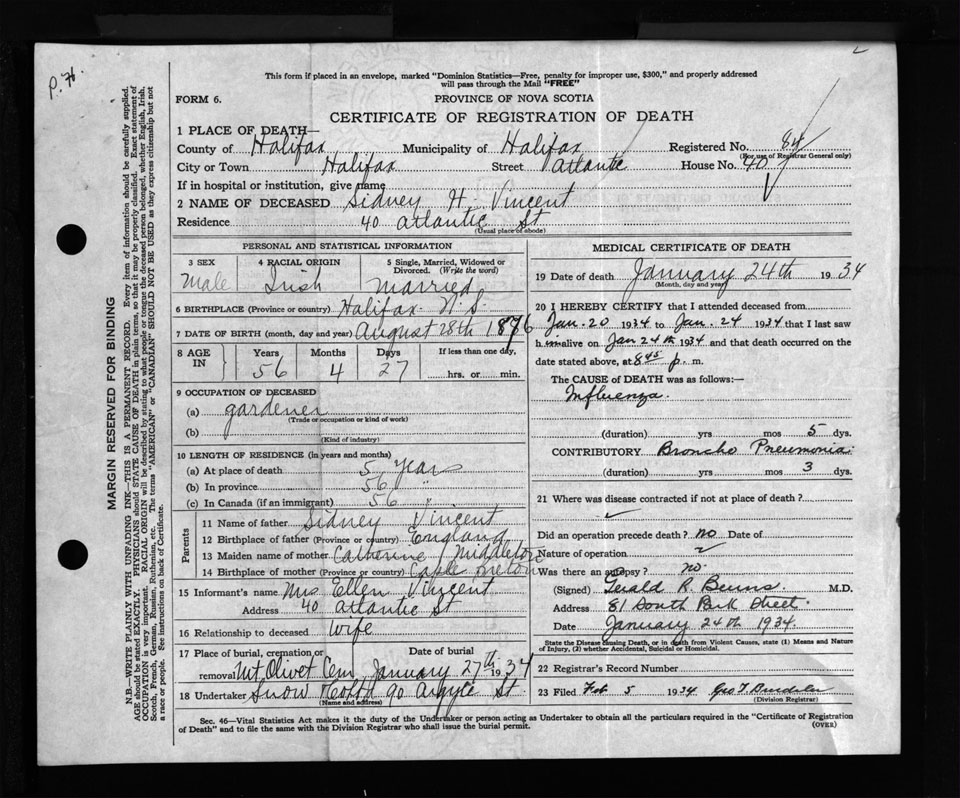 P. H.
This form if placed in an envelope, marked "Dominion Statistics—Free, penalty for improper use, $300," and properly addressed
will pass through the Mail "FREE"
FORM 6.
PROVINCE OF NOVA SCOTIA
CERTIFICATE OF REGISTRATION OF DEATH
1 PLACE OF DEATH—
County of Halifax Municipality of Halifax Registered No. 84
(For use of Registrar General only)
City or Town Halifax Street Atlantic House No. 40
If in hospital or institution, give name
2 NAME OF DECEASED Sidney H. Vincent
Residence 40 Atlantic St
(Usual place of abode)
PERSONAL AND STATISTICAL INFORMATION
3 SEX 4 RACIAL ORIGIN 5 Single, Married, Widowed or
Divorced. (Write the word)
Male Irish Married
6 BIRTHPLACE (Province or country) Halifax N.S.
7 DATE OF BIRTH (month, day and year) August 28th 1876
8 AGE IN Years Months Days If less than one day,
56 4 27 hrs. or min.
9 OCCUPATION OF DECEASED
(a) gardener
(Trade or occupation or kind of work)
(b)
(Kind of industry)
10 LENGTH OF RESIDENCE (in years and months)
(a) At place of death 5 years
(b) In province 56 "
(c) In Canada (if an immigrant) 56 "
Parents
11 Name of father Sidney Vincent
12 Birthplace of father (Province or country) England
13 Maiden name of mother Catherine Middleton
14 Birthplace of mother (Province or country) Cape Breton
15 Informant's name Mrs Ellen Vincent
Address 40 Atlantic St
16 Relationship to deceased Wife
17 Place of burial, cremation or removal Date of burial
Mt Olivet Cem January 27th 1934
18 Undertaker Snow & Co Ltd 90 Argyle St
(Name and address)
MEDICAL CERTIFICATE OF DEATH
19 Date of death January 24th 1934
(Month, day and year)
20 I HEREBY CERTIFY that I attended deceased from
Jan. 20 1934 to Jan. 24 1934 that I last saw
him alive on Jan 24th 1934 and that death occurred on the
date stated above, at 8 45 p. m.
The CAUSE of DEATH was as follows:—
Influenza.
(duration) yrs mos 5 dys.
CONTRIBUTORY Broncho Pneumonia
(duration) yrs mos 3 dys.
21 Where was disease contracted if not at place of death?
Did an operation precede death? no Date of
Nature of operation
Was there an autopsy? no.
(Signed) Gerald R. Burns M.D.
Address 81 South Park Street.
Date January 24th 1934.
State the Disease causing Death, or in death from Violent Causes, state (1) Means and Nature
of Injury, (2) whether Accidental, Suicidal or Homicidal.
22 Registrar's Record Number
23 Filed Feb 5 1934 Geo T
(Division Registrar)
Sec. 46—Vital Statistics Act makes it the duty of the Undertaker or person acting as Undertaker to obtain all the particulars required in the "Certificate of Registration
of Death" and to file the same with the Division Registrar who shall issue the burial permit.
(OVER)
MARGIN RESERVED FOR BINDING
N.B.—WRITE PLAINLY WITH UNFADING INK—THIS IS A PERMANENT RECORD. Every item of information should be carefully supplied.
AGE should be stated EXACTLY. PHYSICIANS should STATE CAUSE OF DEATH in plain terms, so that it may be properly classified. Exact statement of
OCCUPATION is very important. RACIAL ORIGIN will be described by stating to what people or tongue the deceased person belonged, whether English, Irish,
Scotch, French, German, Russian, Ruthenian, etc. The terms "AMERICAN" or "CANADIAN" SHOULD NOT BE USED as they express citizenship but not
a race or people. See instructions on back of Certificate.